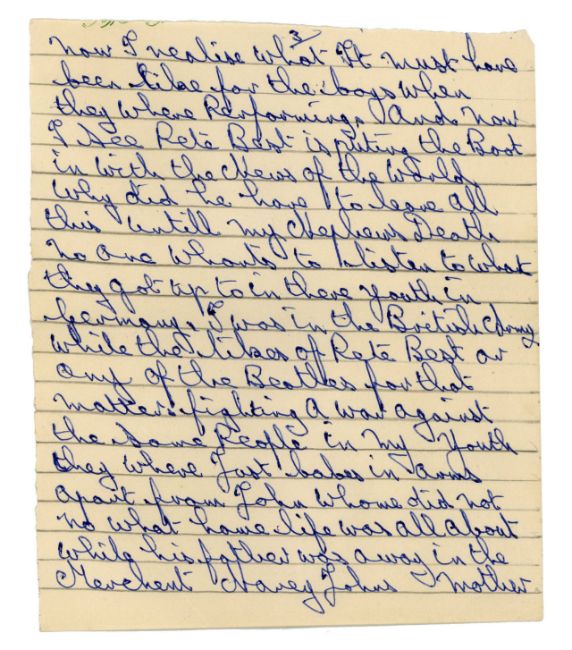 3
now I realise what It must have
been like for the boys when
they where Performing. And now
I see Pete Best is puting the Boot
in with the News of the World
Why did he have to leave all
this untill my Nephews Death
no one whants to listen to what
they got up to in there youth in
Germany. I was in the British Army
while the likes of Pete Best or
any of the Beatles for that
matter. fighting a war against
the same People in my youth
they where Just babes in arms
apart from John whome did not
no what home life was all about
while his father was away in the
Merchent Navey Johns mother